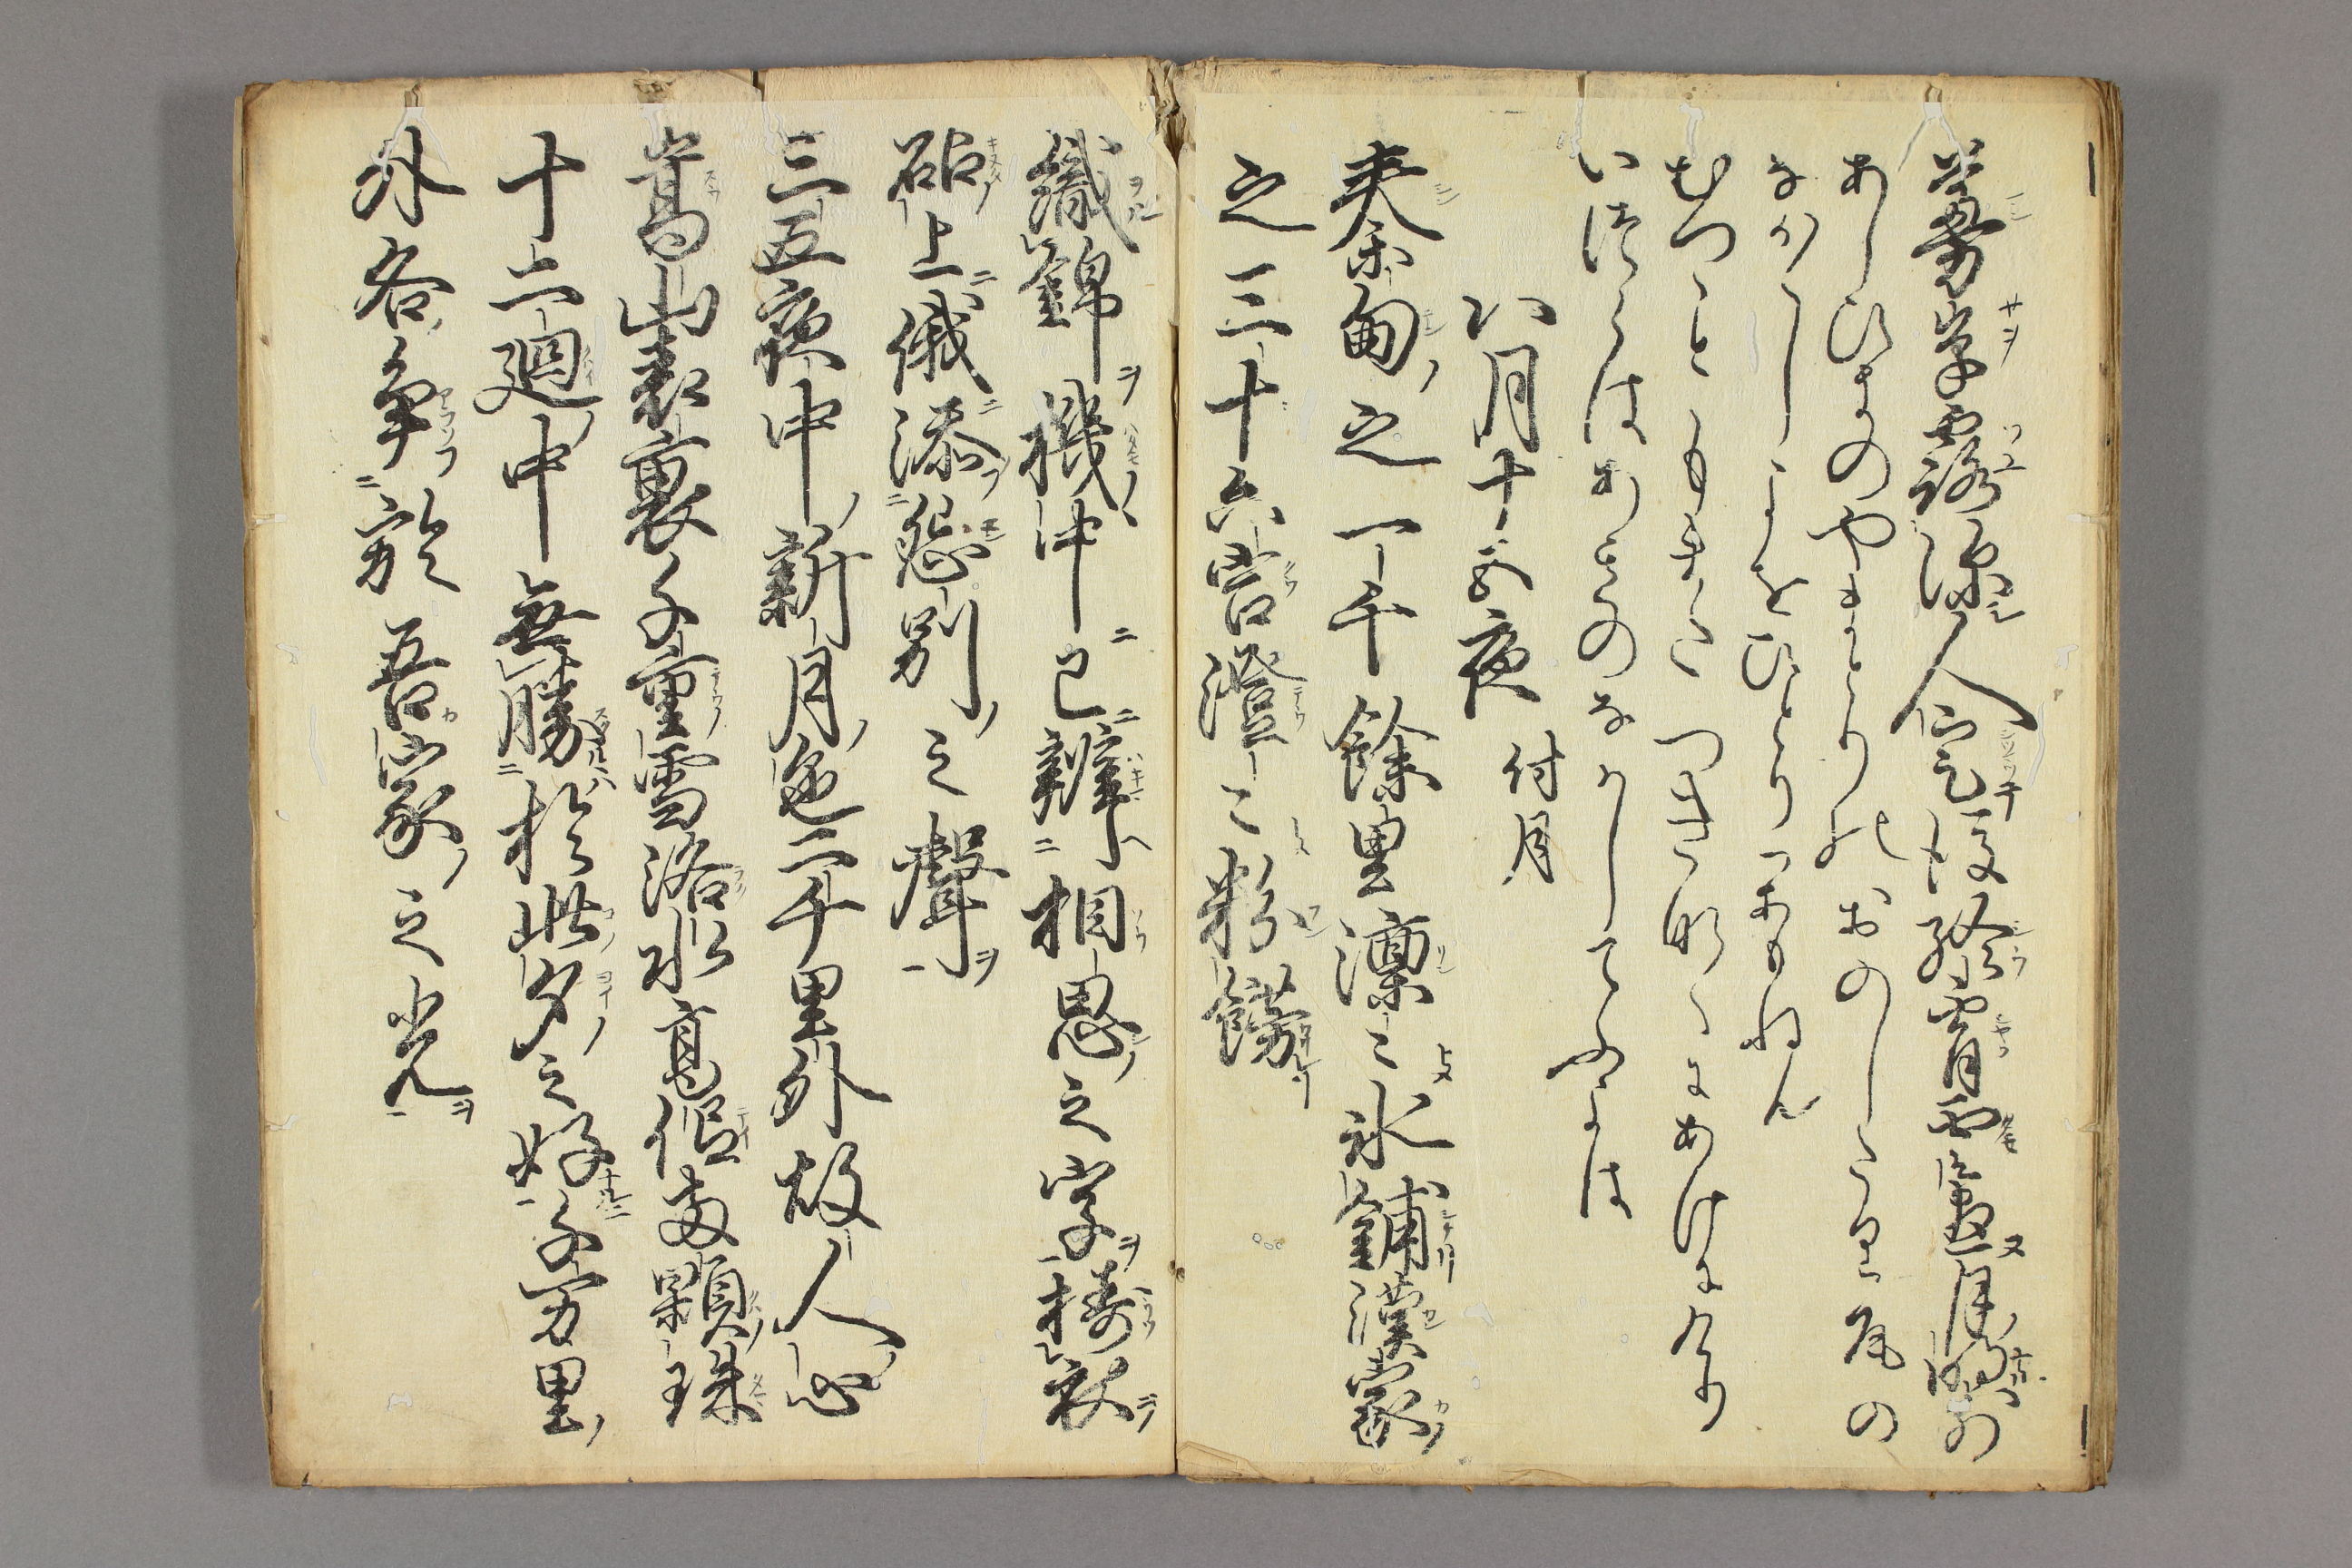 蔓草露深人定後終霄雲盡月明前
あしひきのやまとりのおのしたり尾の
なか〳〵しよをひとりかもねん
むつこともまたつきなくにあけにけり
いつらはあきのなかしてふよは
八月十五夜 付月
秦甸之一千餘里凛々氷鋪漢家
之三十六宮澄々粉餝
織錦機中已辨相思之字擣衣
砧上俄添怨別之聲
三五夜中新月色二千里外故人心
嵩山表裏千重雪洛水高低両顆珠
十二廻中無勝於此夕之好千万里
外各争於吾家之光